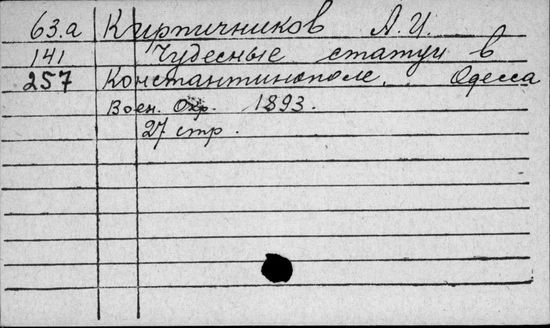 63.а Кирпичников А.И.
141 Чудесные статуи в
257 Константинополе. Одесса
Воен. Окр. 1893.
27 стр.